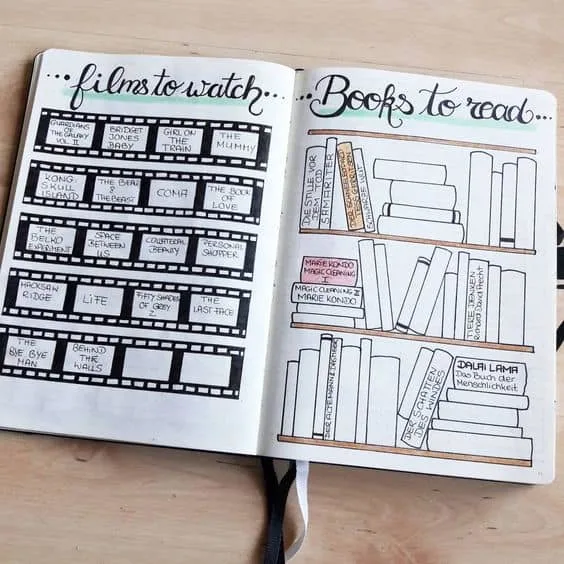 ...films to watch...
GUARDIANS
OF
THE GALAXY
VOL. II
BRIDGET
JONES
BABY
GIRL ON
THE
TRAIN
THE
MUMMY
KONG
SKULL
ISLAND
THE BEAST
&
THE BEAST
COMA
THE BOOK
OF
LOVE
THE
BELKO
EXPERIMENT
SPACE
BETWEEN
US
COLLATERAL
BEAUTY
PERSONAL
SHOPPER
HACKSAW
RIDGE
LIFE
FIFTY SHADES
OF GREY
2
THE
LAST FACE
THE
BYE BYE
MAN
BEHIND
THE
WALLS
...Books to read...
DIE STILLE VOR
DEM TOD
SAMARITER
MARIE KONDO
MAGIC CLEANING
I
MAGIC CLEANING 2
MARIE KONDO
TIEFE DENKEN
Richard David Precht
DER SCHATTEN
DES WINDES
DALAI LAMA
Das Buch der
Menschlichkeit